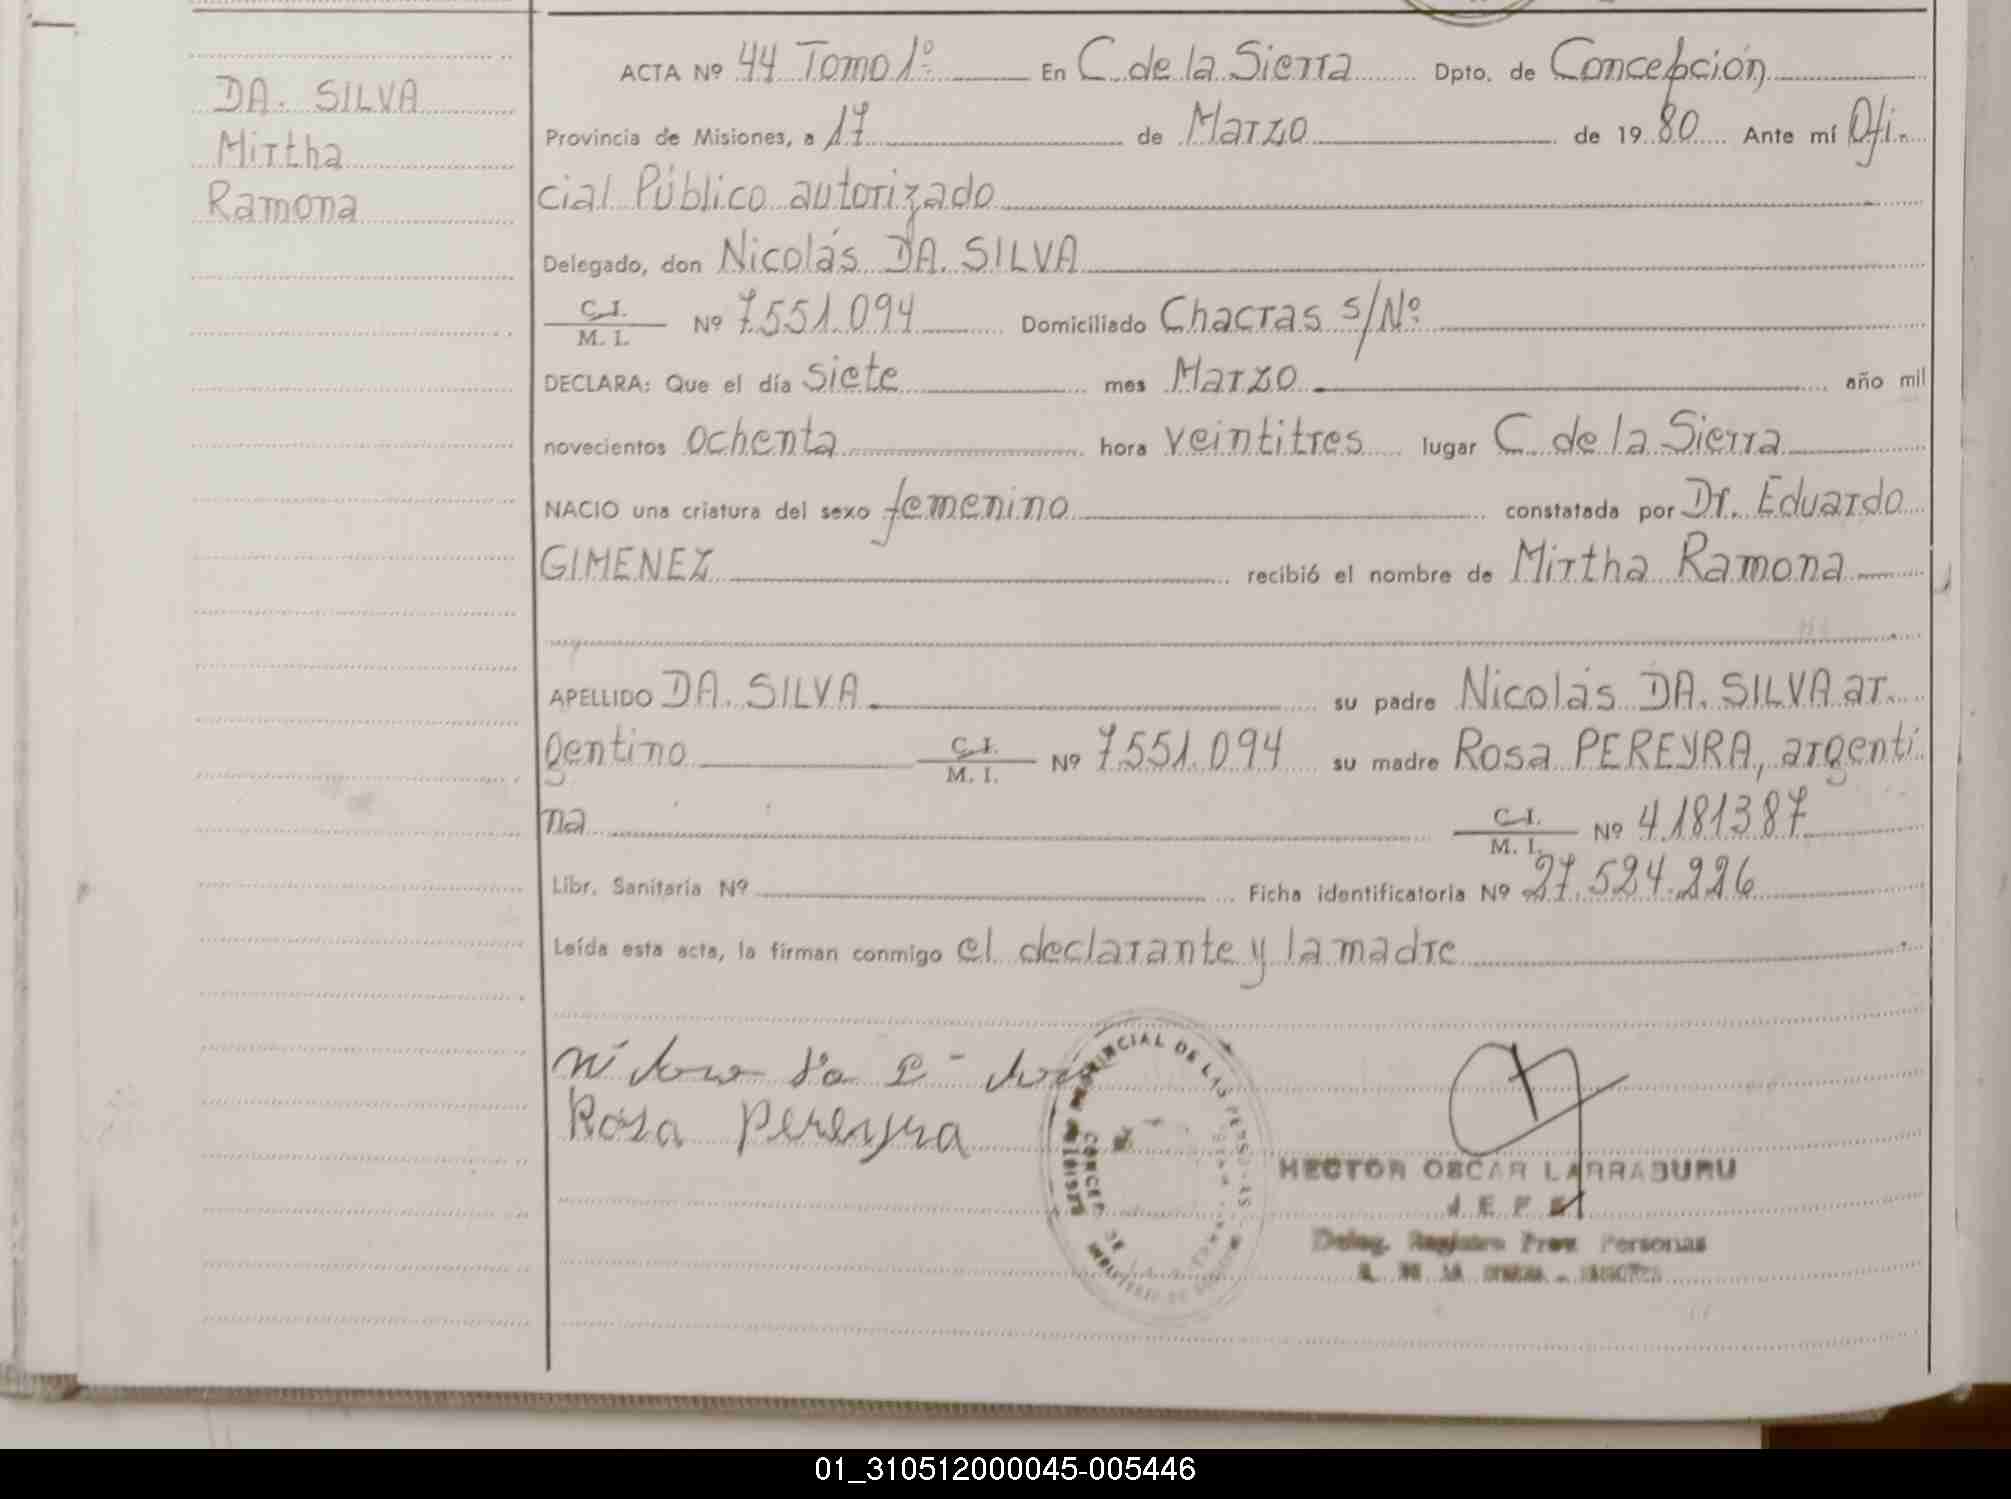 DA. SILVA
Mirtha
Ramona
ACTA Nº 44 Tomo 1º En C. de la Sierra Dpto. de Concepción
Provincia de Misiones, a 17 de Marzo de 1980 Ante mí Ofi-
cial Público autorizado
Delegado, don Nicolás DA. SILVA
C.I.
M. I. Nº 7.551.094 Domiciliado Chacras s/Nº
DECLARA: Que el día siete mes Marzo año mil
novecientos ochenta hora veintitres lugar C. de la Sierra
NACIO una criatura del sexo femenino constatada por Dr. Eduardo
GIMENEZ recibió el nombre de Mirtha Ramona
APELLIDO DA. SILVA su padre Nicolás DA. SILVA ar
gentino C.I.
M. I. Nº 7.551.094 su madre Rosa PEREYRA, argenti
na C.I.
M. I. Nº 4.181387
Libr. Sanitaria Nº Ficha identificatoria Nº 27.524.226
Leída esta acta, la firman conmigo el declarante y la madre
Rosa Pereyra
HECTOR OSCAR LARRABURU
JEFE
Deleg. Registro Prov. Personas
01_310512000045-005446